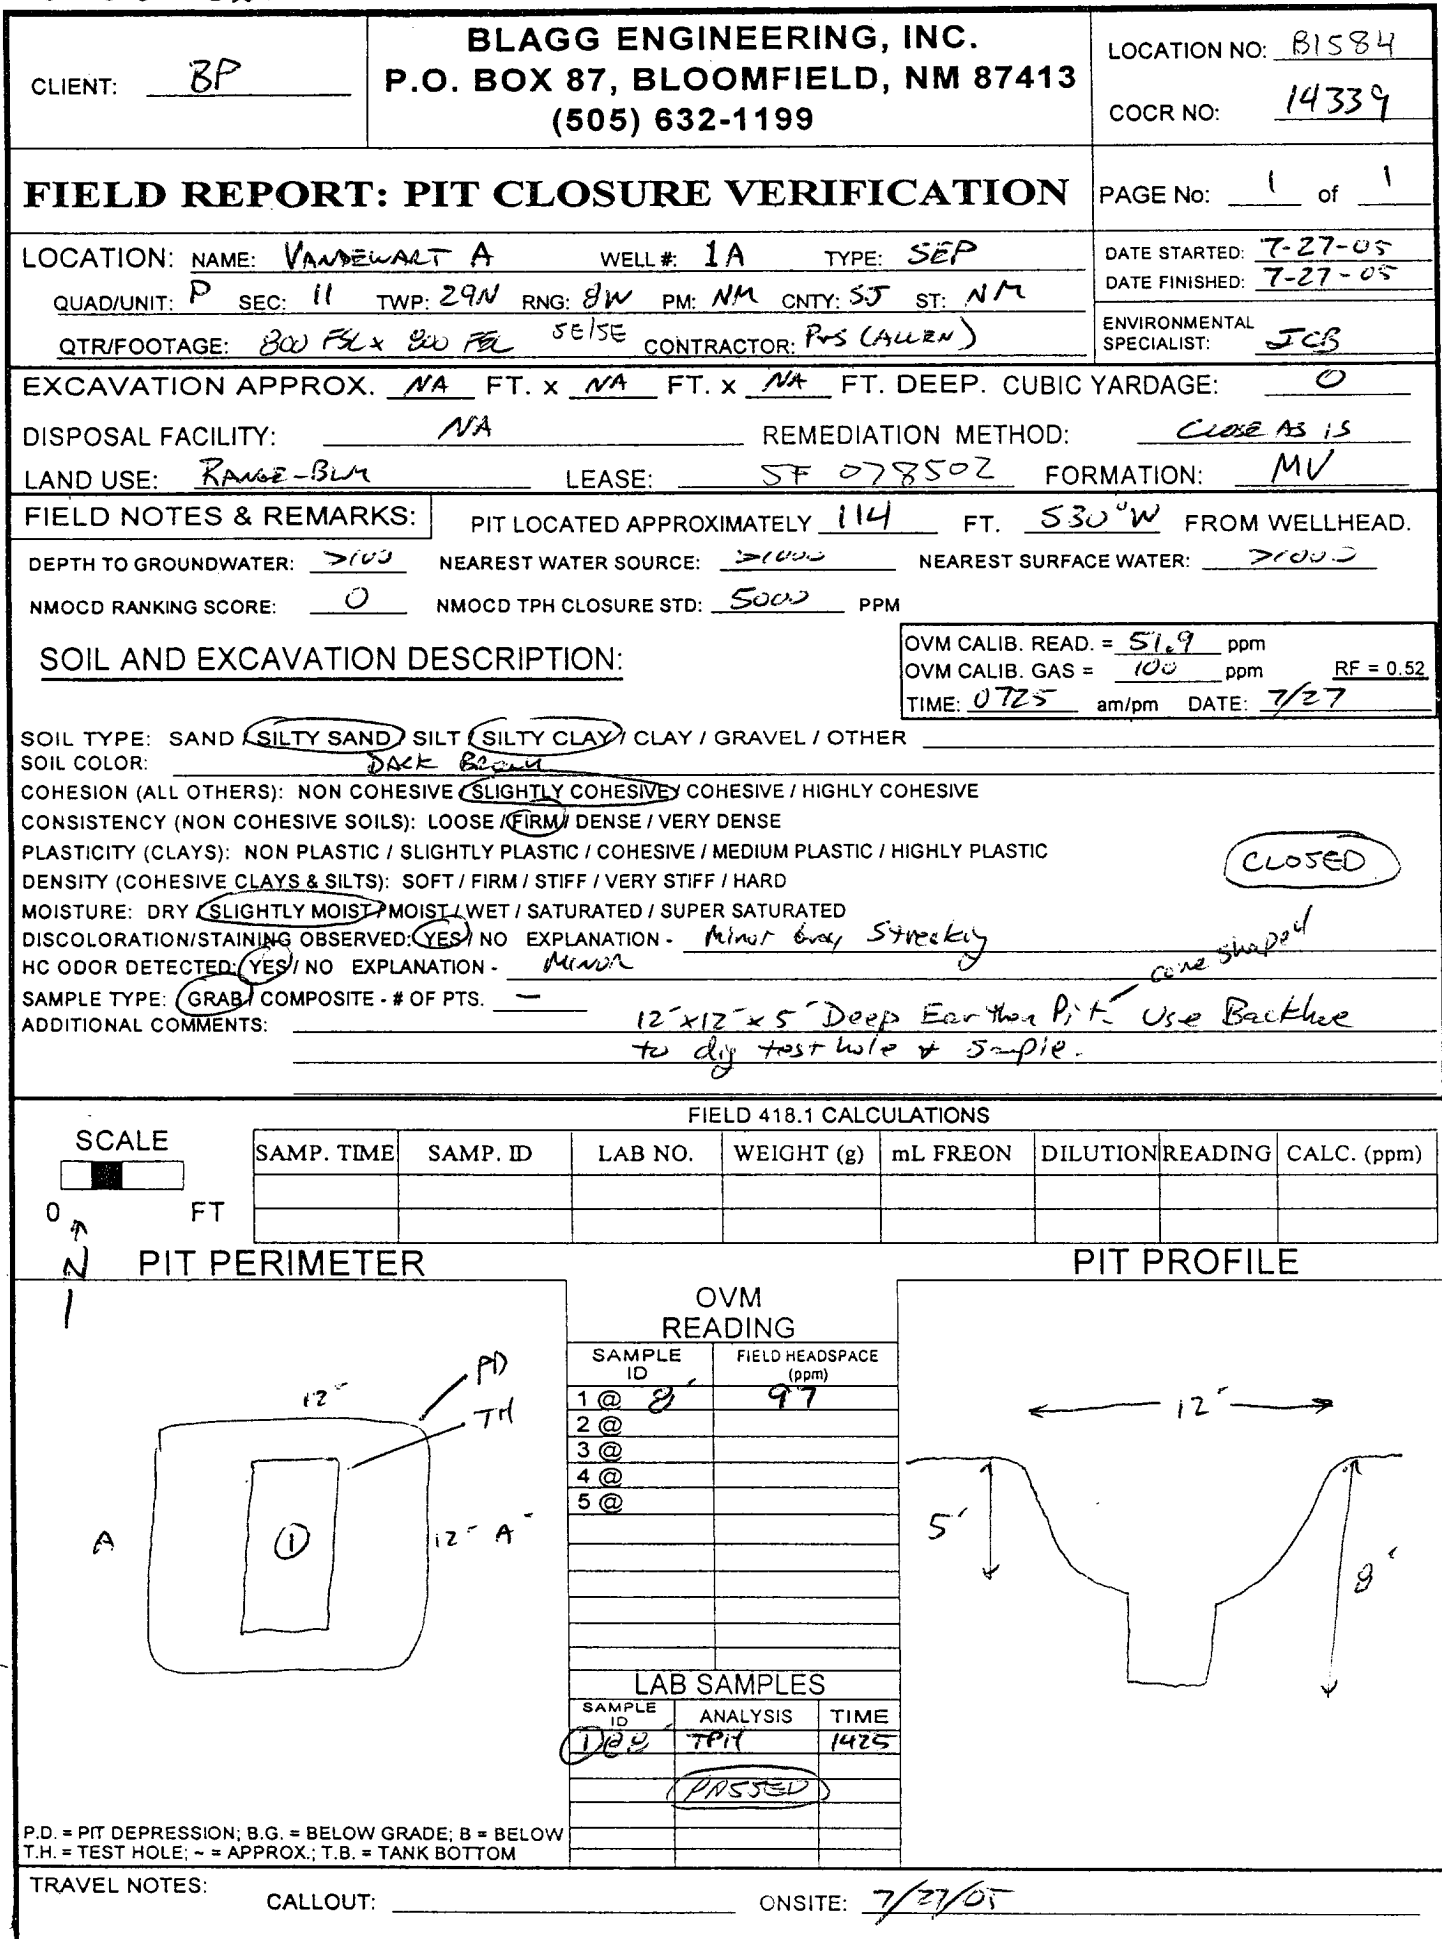 BLAGG ENGINEERING, INC.
P.O. BOX 87, BLOOMFIELD, NM 87413
(505) 632-1199
CLIENT: BP
LOCATION NO: B1584
COCR NO: 14339
FIELD REPORT: PIT CLOSURE VERIFICATION
PAGE No: 1 of 1
LOCATION: NAME: VANDEWART A WELL #: 1A TYPE: SEP
QUAD/UNIT: P SEC: 11 TWP: 29N RNG: 8W PM: NM CNTY: SJ ST: NM
QTR/FOOTAGE: 800 FSL x 800 FEL SE/SE CONTRACTOR: P+S (ALLEN)
DATE STARTED: 7-27-05
DATE FINISHED: 7-27-05
ENVIRONMENTAL
SPECIALIST: JCB
EXCAVATION APPROX. NA FT. x NA FT. x NA FT. DEEP. CUBIC YARDAGE: 0
DISPOSAL FACILITY: NA REMEDIATION METHOD: CLOSE AS IS
LAND USE: RANGE-BLM LEASE: SF 078502 FORMATION: MV
FIELD NOTES & REMARKS: PIT LOCATED APPROXIMATELY 114 FT. S30°W FROM WELLHEAD.
DEPTH TO GROUNDWATER: >100 NEAREST WATER SOURCE: >1000 NEAREST SURFACE WATER: >1000
NMOCD RANKING SCORE: 0 NMOCD TPH CLOSURE STD: 5000 PPM
SOIL AND EXCAVATION DESCRIPTION:
OVM CALIB. READ. = 51.9 ppm
OVM CALIB. GAS = 100 ppm RF = 0.52
TIME: 0725 am/pm DATE: 7/27
SOIL TYPE: SAND / SILTY SAND / SILT / SILTY CLAY / CLAY / GRAVEL / OTHER
SOIL COLOR: DARK BROWN
COHESION (ALL OTHERS): NON COHESIVE / SLIGHTLY COHESIVE / COHESIVE / HIGHLY COHESIVE
CONSISTENCY (NON COHESIVE SOILS): LOOSE / FIRM / DENSE / VERY DENSE
PLASTICITY (CLAYS): NON PLASTIC / SLIGHTLY PLASTIC / COHESIVE / MEDIUM PLASTIC / HIGHLY PLASTIC
CLOSED
DENSITY (COHESIVE CLAYS & SILTS): SOFT / FIRM / STIFF / VERY STIFF / HARD
MOISTURE: DRY / SLIGHTLY MOIST / MOIST / WET / SATURATED / SUPER SATURATED
DISCOLORATION/STAINING OBSERVED: YES / NO EXPLANATION - Minor Gray Streaking
HC ODOR DETECTED: YES / NO EXPLANATION - MINOR
cone shaped
SAMPLE TYPE: GRAB / COMPOSITE - # OF PTS. —
ADDITIONAL COMMENTS: 12' x 12' x 5' Deep Earthen Pit. Use Backhoe
to dig test hole & sample.
FIELD 418.1 CALCULATIONS
SCALE
0 FT
SAMP. TIME SAMP. ID LAB NO. WEIGHT (g) mL FREON DILUTION READING CALC. (ppm)
N
PIT PERIMETER
PIT PROFILE
OVM
READING
SAMPLE
ID
FIELD HEADSPACE
(ppm)
1 @ 8' 97
2 @
3 @
4 @
5 @
PD
TH
12'
A
1
12' A'
12'
5'
8'
LAB SAMPLES
SAMPLE
ID
ANALYSIS TIME
1@8' TPH 1425
PASSED
P.D. = PIT DEPRESSION; B.G. = BELOW GRADE; B = BELOW
T.H. = TEST HOLE; ~ = APPROX.; T.B. = TANK BOTTOM
TRAVEL NOTES:
CALLOUT: ONSITE: 7/27/05